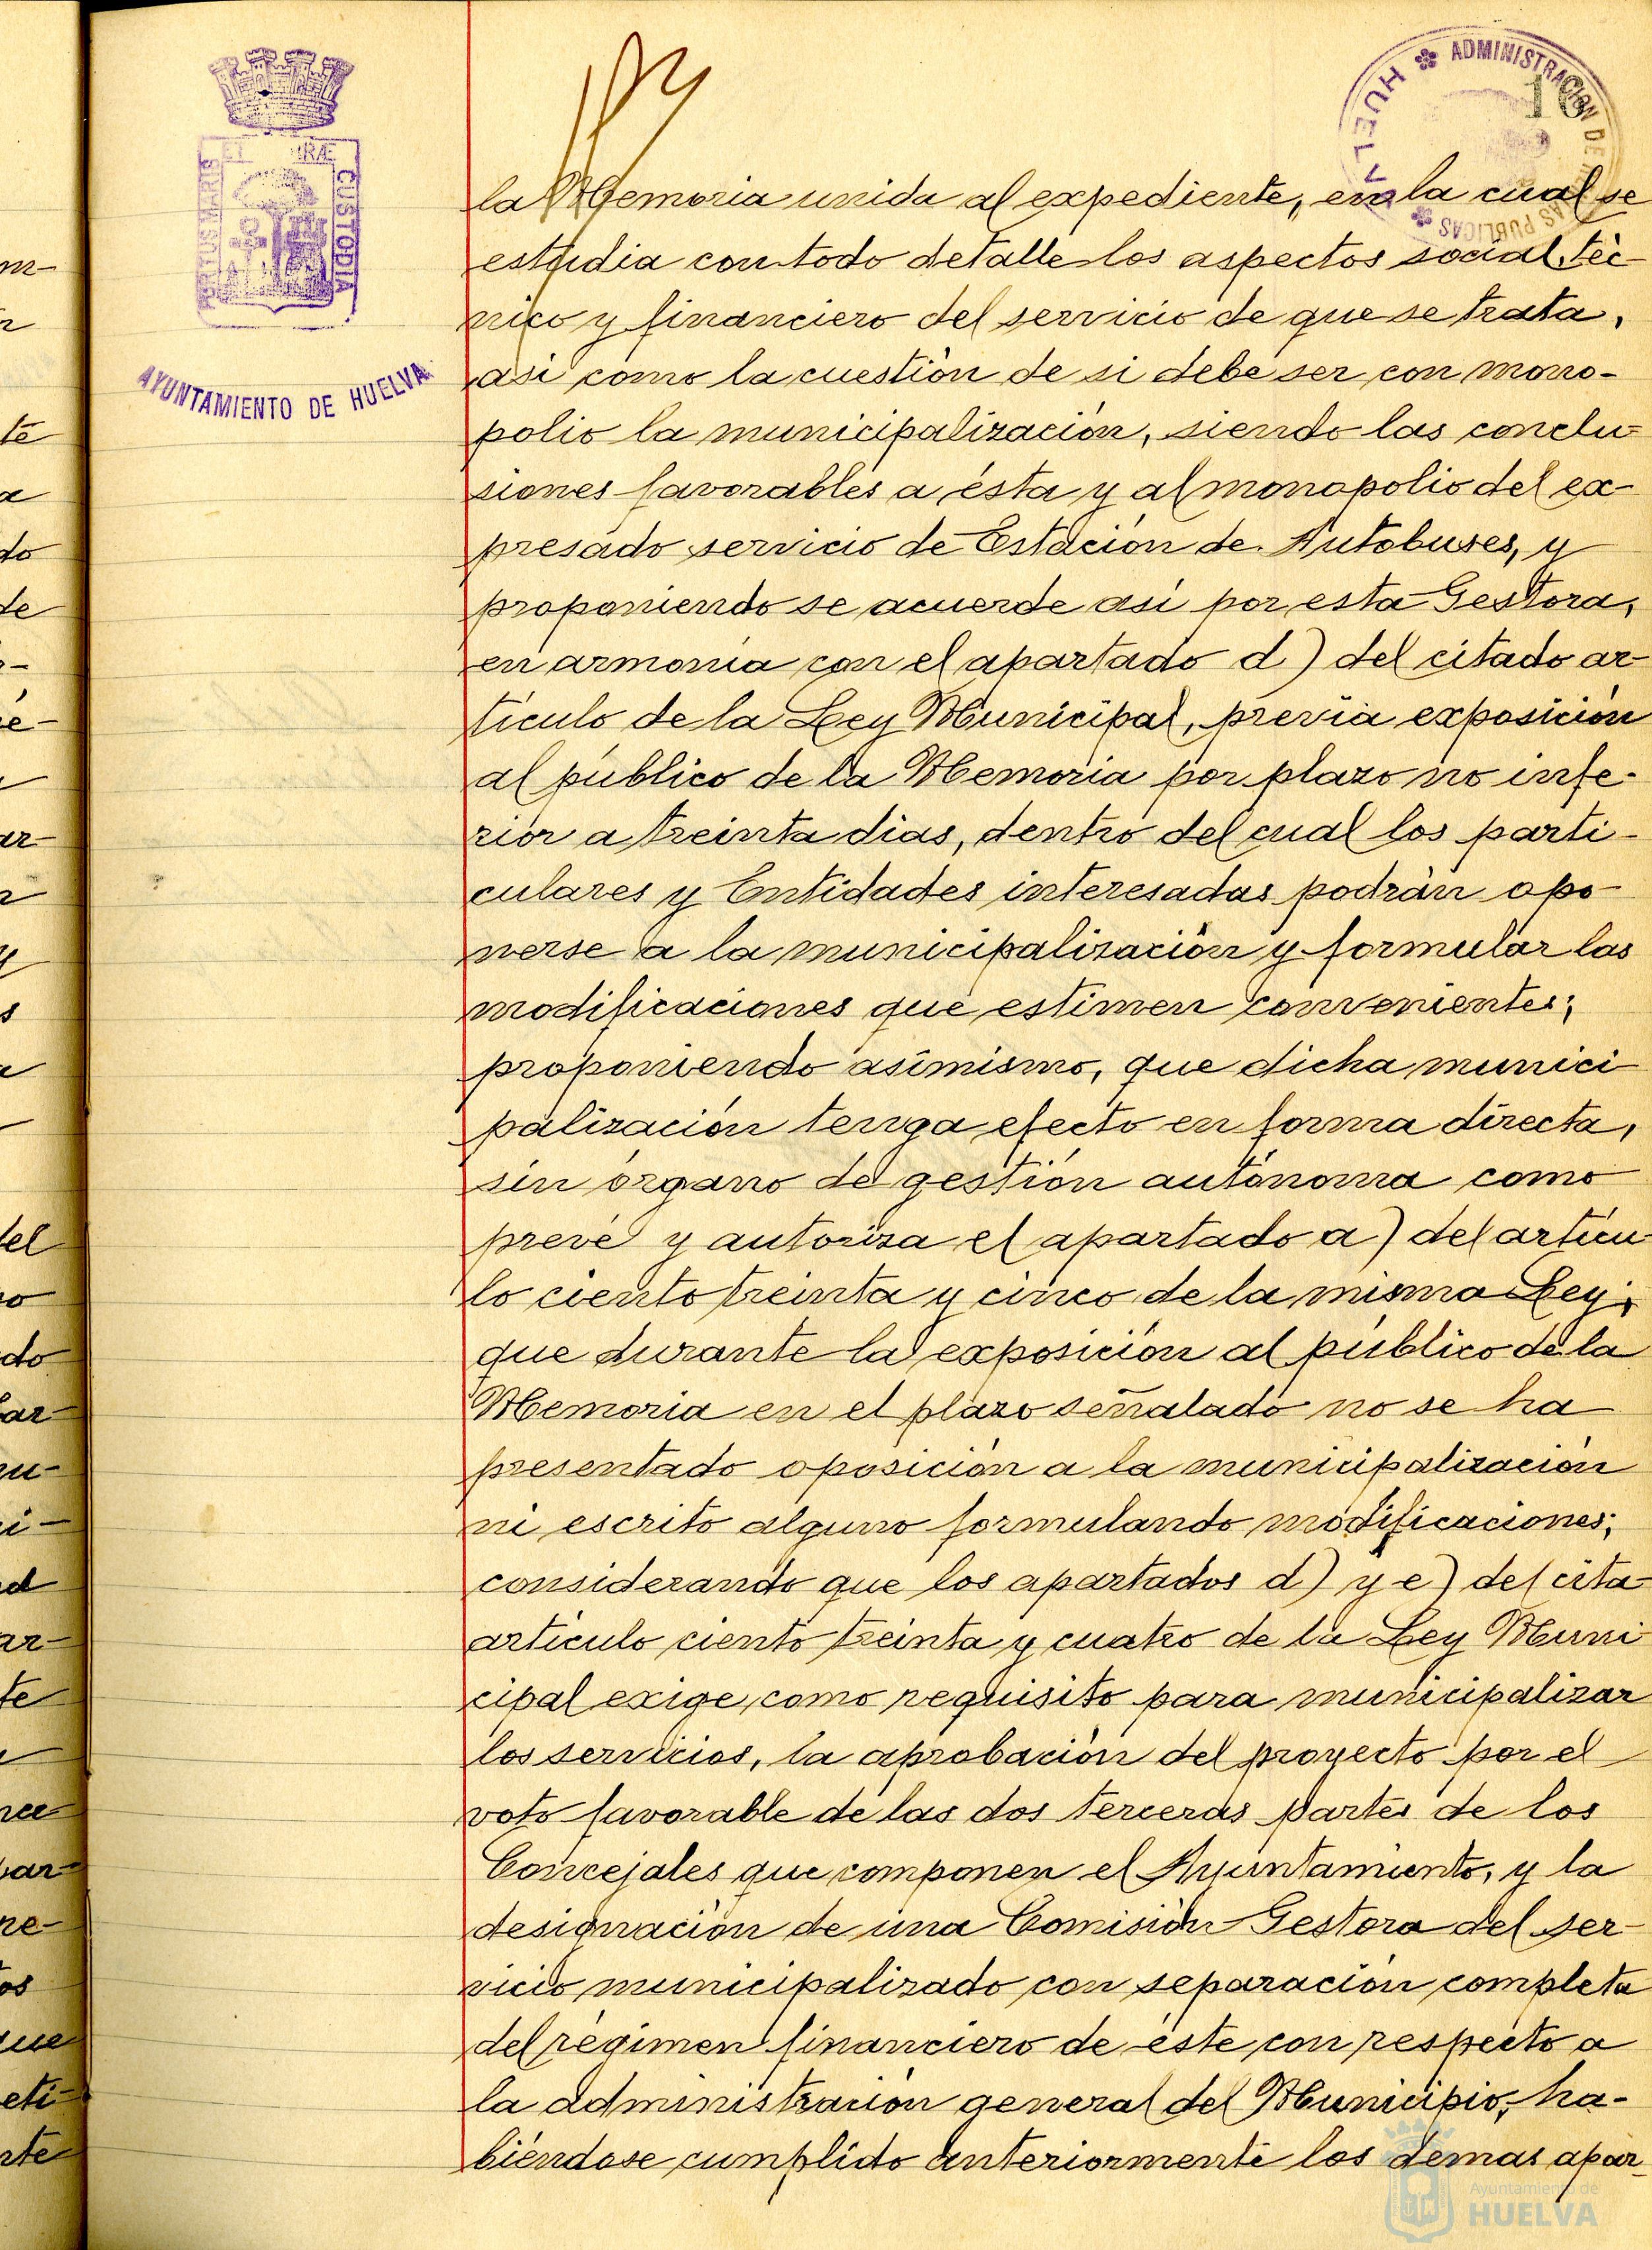 PORTUS MARIS ET TERRÆ CUSTODIA
AYUNTAMIENTO DE HUELVA
ADMINISTRACION DE RENTAS PUBLICAS
HUELVA
16
la Memoria unida al expediente, en la cual se
estudia con todo detalle los aspectos social, téc-
nico y financiero del servicio de que se trata,
así como la cuestión de si debe ser con mono-
polio la municipalización, siendo las conclu-
siones favorables a ésta y al monopolio del ex-
presado servicio de Estación de Autobuses, y
proponiendo se acuerde así por esta Gestora,
en armonía con el apartado d) del citado ar-
tículo de la Ley Municipal, previa exposición
al público de la Memoria por plazo no infe-
rior a treinta días, dentro del cual los parti-
culares y Entidades interesadas podrán opo-
nerse a la municipalización y formular las
modificaciones que estimen convenientes;
proponiendo asímismo, que dicha munici
palización tenga efecto en forma directa,
sin órgano de gestión autónoma como
prevé y autoriza el apartado a) del artícu-
lo ciento treinta y cinco de la misma Ley;
que durante la exposición al público de la
Memoria en el plazo señalado no se ha
presentado oposición a la municipalización
ni escrito alguno formulando modificaciones;
considerando que los apartados d) y e) del cita-
artículo ciento treinta y cuatro de la Ley Muni
cipal exige como requisito para municipalizar
los servicios, la aprobación del proyecto por el
voto favorable de las dos terceras partes de los
Concejales que componen el Ayuntamiento, y la
designación de una Comisión Gestora del ser-
vicio municipalizado con separación completa
del régimen financiero de éste con respecto a
la administración general del Municipio, ha-
biéndose cumplido anteriormente los demas apar-
Ayuntamiento de
HUELVA